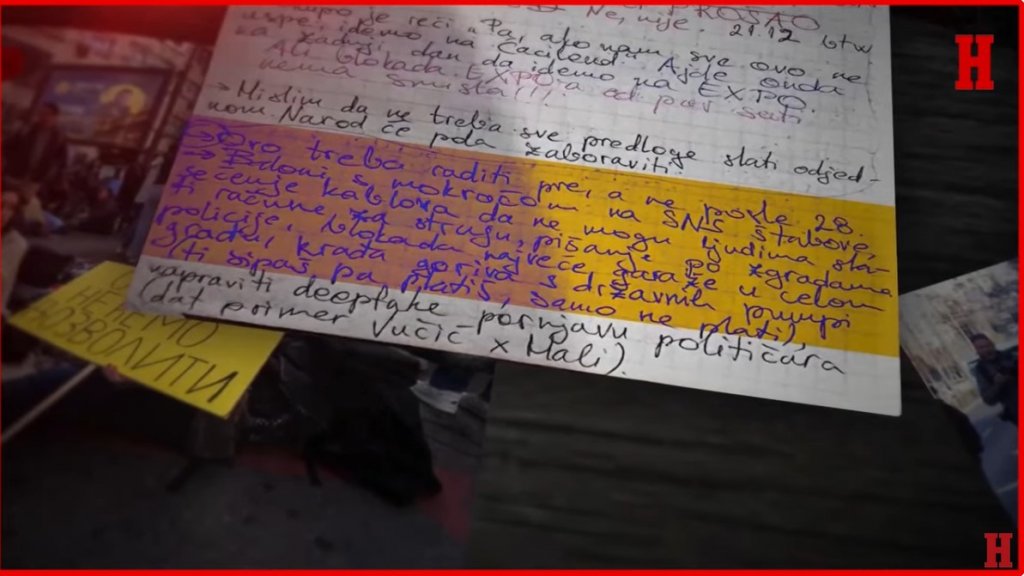 PROŠAO
po je reći "Pa, ako nam sve ovo ne
uspe, idemo na Ćacilend. Ajde onda
za zadnji dan da idemo na EXPO.
Ali blokada EXPO-a od par sati
nema smisla!!!
Ne, nije. 21.12 btw
→ Mislim da ne treba sve predloge slati odjed-
nom. Narod će pola zaboraviti.
treba raditi pre, a ne posle 28.
s mokročom na SNS štabove,
sečenje kablova da ne mogu ljudima sla-
ti račune za struju, pisanje po zgradama
policije, blokada najveće garaže u celom
gradu, krađa goriva s državnih pumpi
(ti sipaš pa platiš, samo ne plati),
napraviti deepfake pornjavu političara
(dat primer Vučić x Mali).
НЕЋЕМО
ДОЗВОЛИТИ
H
H